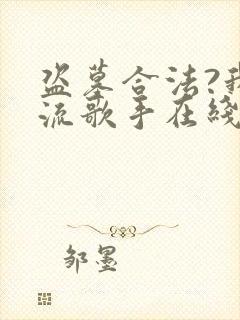 盗墓合法?我
流歌手在线
邹墨